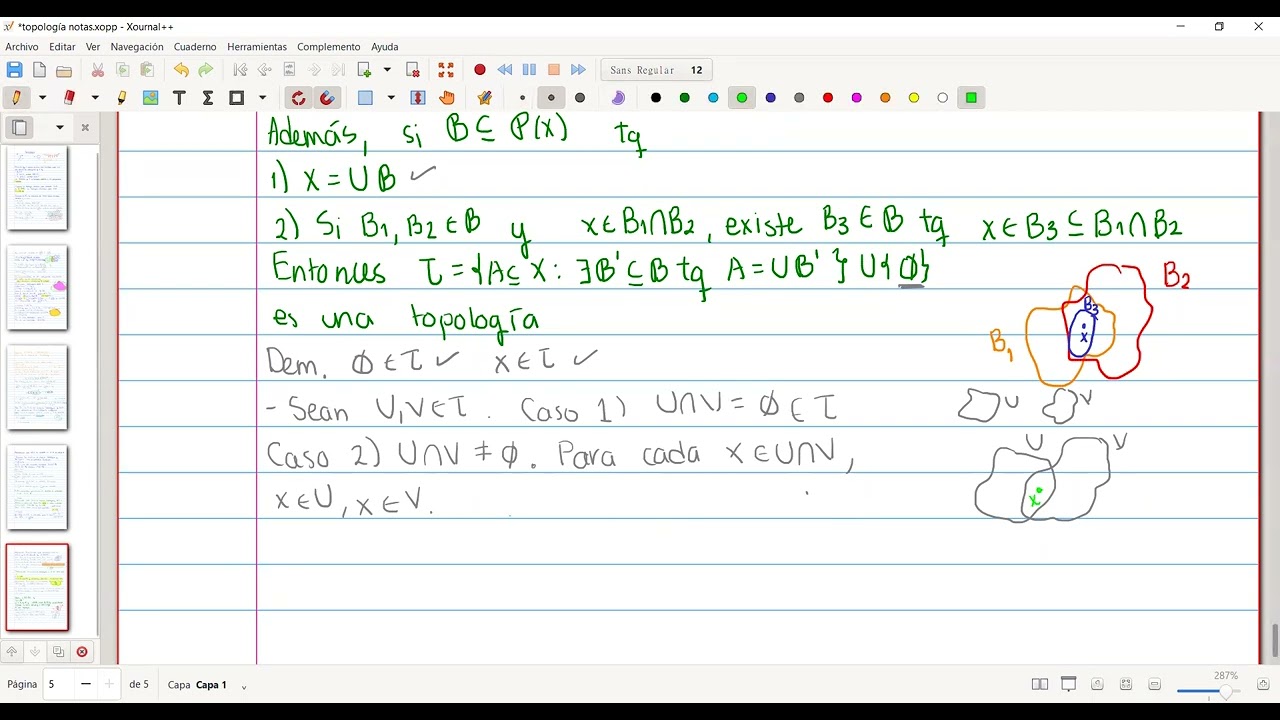 *topología notas.xopp - Xournal++
Archivo Editar Ver Navegación Cuaderno Herramientas Complemento Ayuda
Sans Regular 12
Además, si B ⊆ P(X) tq
1) X = ∪B ✓
2) Si B1, B2 ∈ B y x ∈ B1∩B2, existe B3 ∈ B tq x ∈ B3 ⊆ B1∩B2
Entonces τ = {A ⊆ X : ∃B' ⊆ B tq A = ∪B' } ∪ {∅}
es una topología
B1 B2 B3 x
Dem. ∅ ∈ τ ✓ X ∈ τ ✓
- Sean U, V ∈ τ Caso 1) U∩V = ∅ ∈ τ
U V
Caso 2) U∩V ≠ ∅. Para cada x ∈ U∩V,
x ∈ U, x ∈ V.
U V
x
Página 5 de 5 Capa Capa 1
287%